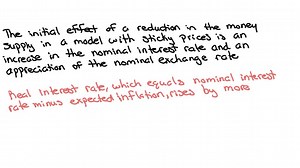 The initial effect of a reduction in the money
supply in a model with sticky prices is an
increase in the nominal interest rate and an
appreciation of the nominal exchange rate
Real interest rate, which equals nominal interest
rate minus expected inflation, rises by more